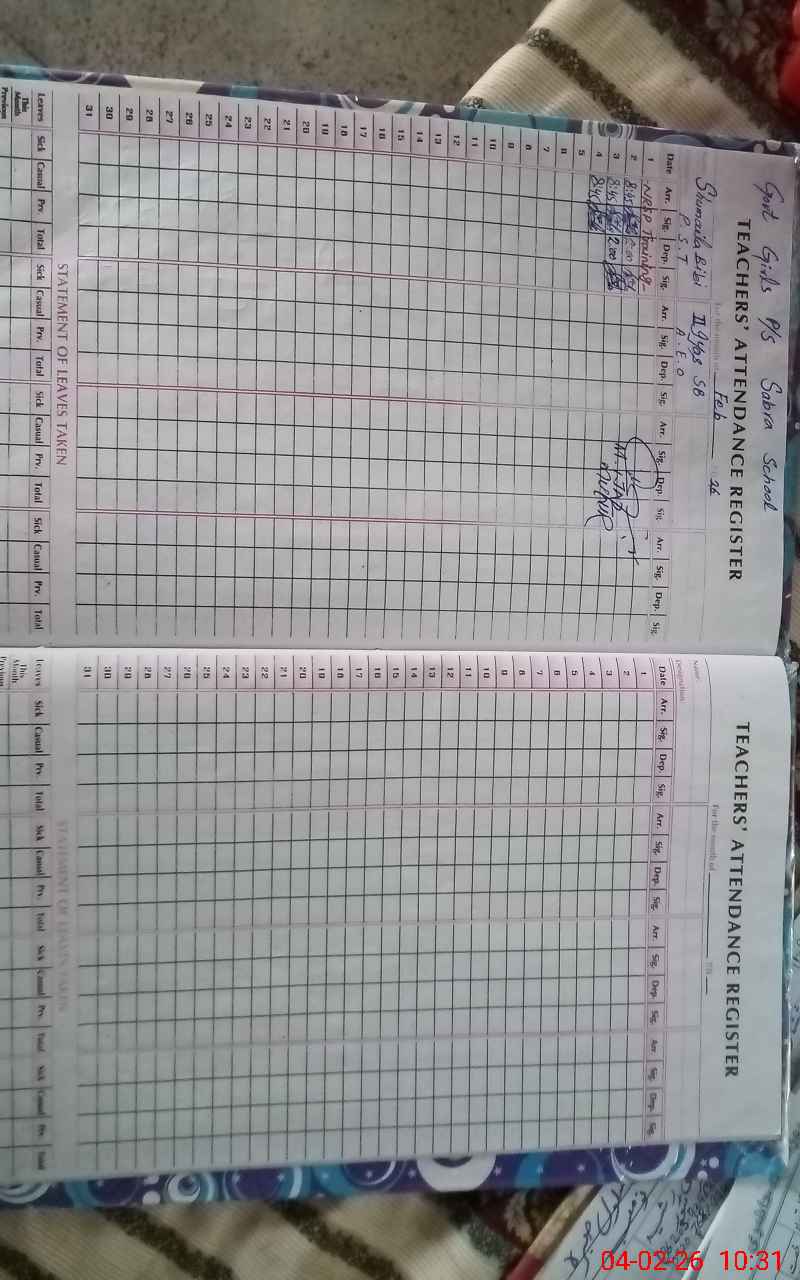 Govt Girls P/S Sabra School
TEACHERS' ATTENDANCE REGISTER
For the month of Feb 26
Shumaila Bibi
P.S.T A.E.O
Date Arr. Sig. Dep. Sig. Arr. Sig. Dep. Sig. Arr. Sig. Dep. Sig. Arr. Sig. Dep. Sig.
1 -NRSP Training-
2 8:45 2:00
3 8:45 2:00
4 8:45
5
6
7
8
9
10
11
12
13
14
15
16
17
18
19
20
21
22
23
24
25
26
27
28
29
30
31
STATEMENT OF LEAVES TAKEN
Leaves Sick Casual Prv. Total Sick Casual Prv. Total Sick Casual Prv. Total Sick Casual Prv. Total
This Month
Previous
TEACHERS' ATTENDANCE REGISTER
For the month of
Name:
Designation
Date Arr. Sig. Dep. Sig. Arr. Sig. Dep. Sig. Arr. Sig. Dep. Sig. Arr Sig. Dep. Sig.
1
2
3
4
5
6
7
8
9
10
11
12
13
14
15
16
17
18
19
20
21
22
23
24
25
26
27
28
29
30
31
STATEMENT OF LEAVES TAKEN
Leaves Sick Casual Prv. Total Sick Casual Prv. Total Sick Casual Prv. Total Sick Casual Prv. Total
This Month
Previous
04-02-26 10:31